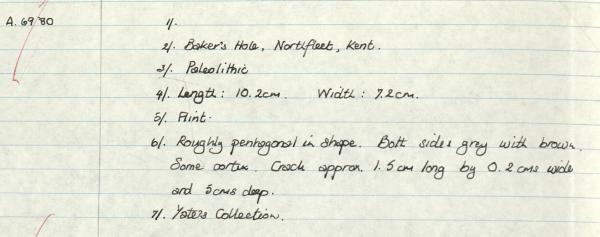 A. 69/80 1/.
2/. Baker's Hole, Northfleet, Kent.
3/. Paleolithic
4/. Length: 10.2cm. Width: 7.2cm.
5/. Flint.
6/. Roughly pentagonal in shape. Both sides grey with brown.
Some cortex. Crack approx. 1.5cm long by 0.2cms wide
and 5cms deep.
7/. Yates Collection.